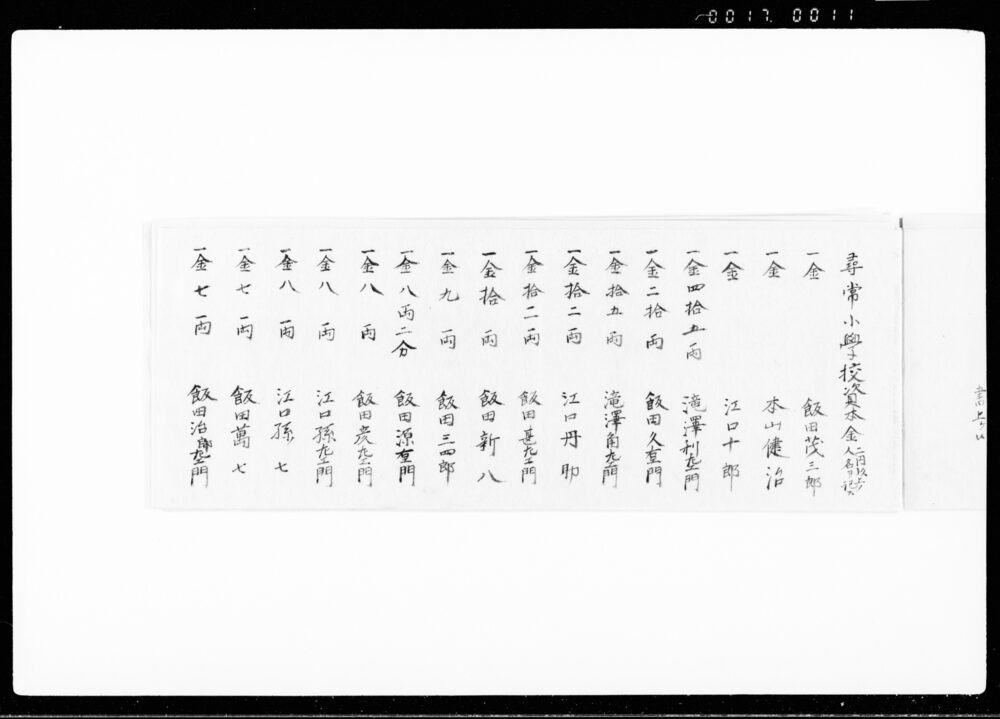 0017. 0011
尋常小學校資本金
一金 飯田茂三郎
一金 本山健治
一金 江口十郎
一金四拾五両 滝澤利左エ門
一金二拾両 飯田久左エ門
一金拾五両 滝澤角左エ門
一金拾二両 江口丹助
一金拾二両 飯田甚左エ門
一金拾両 飯田新八
一金九両 飯田三四郎
一金八両二分 飯田源右エ門
一金八両 飯田炭左エ門
一金八両 江口孫左エ門
一金八両 江口孫七
一金七両 飯田萬七
一金七両 飯田治郎左エ門